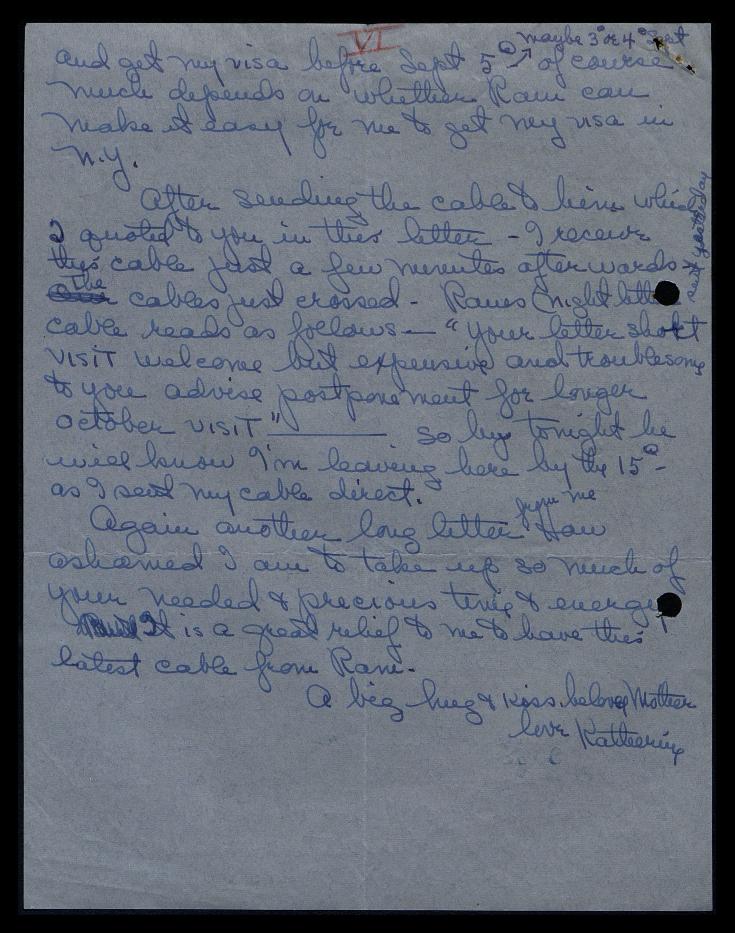 VI
maybe 3° or 4° Sept
and get my visa before Sept 5° of course
much depends on whether Ram can
make it easy for me to get my visa in
N.Y.
After sending the cable to him which
I quoted to you in this letter - I receive
this cable just a few minutes afterwards -
sent yesterday
The cables just crossed - Rams (night letter
cable reads as follows — "your letter short
VISIT welcome but expensive and troublesome
to you advise postponement for longer
October VISIT" ———— so by tonight he
will know I'm leaving here by the 15° -
as I sent my cable direct.
Again another long letter from me How
ashamed I am to take up so much of
your needed & precious time & energy
It is a great relief to me to have this
latest cable from Ram.
A big hug & kiss beloved Mother
love Katherine